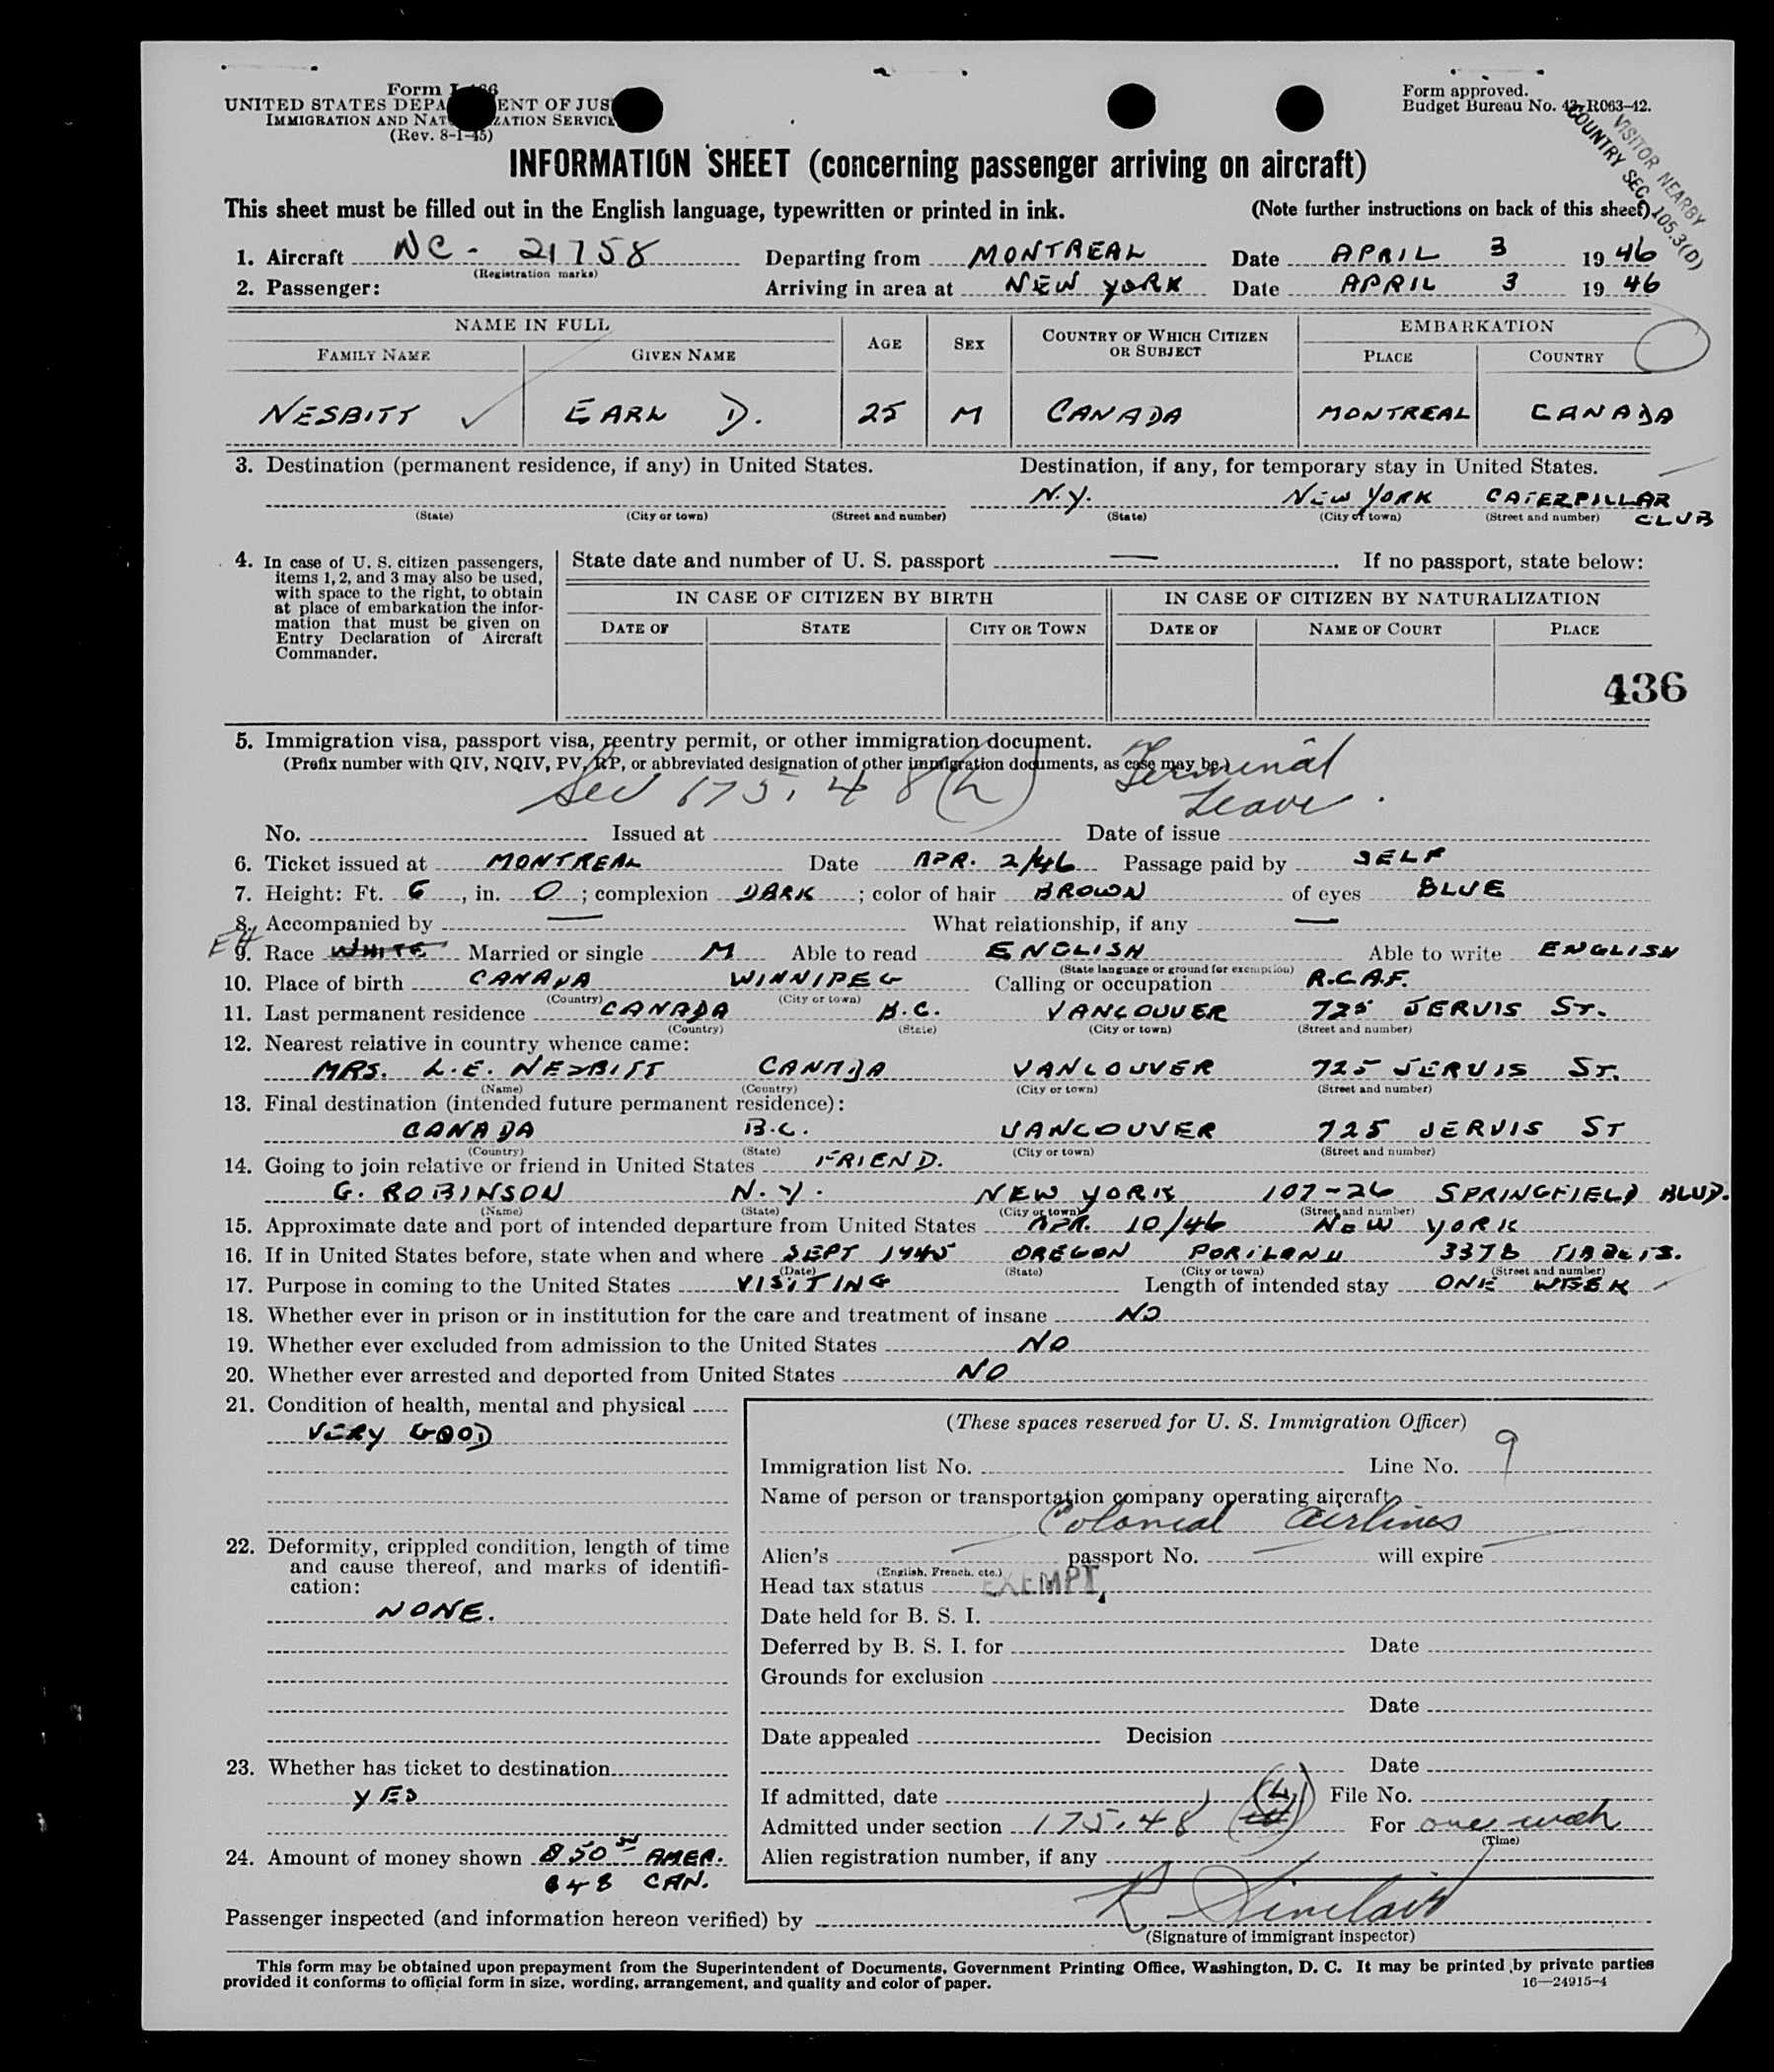 Form I-466
UNITED STATES DEPARTMENT OF JUSTICE
IMMIGRATION AND NATURALIZATION SERVICE
(Rev. 8-1-45)
Form approved.
Budget Bureau No. 43-R063-42.
VISITOR NEARBY
COUNTRY SEC. 105.3(D)
INFORMATION SHEET (concerning passenger arriving on aircraft)
This sheet must be filled out in the English language, typewritten or printed in ink. (Note further instructions on back of this sheet)
1. Aircraft NC - 21758 Departing from MONTREAL Date APRIL 3 1946
(Registration marks)
2. Passenger: Arriving in area at NEW YORK Date APRIL 3 1946
NAME IN FULL AGE SEX COUNTRY OF WHICH CITIZEN OR SUBJECT EMBARKATION
FAMILY NAME GIVEN NAME PLACE COUNTRY
NESBITT ✓ EARL D. 25 M CANADA MONTREAL CANADA
3. Destination (permanent residence, if any) in United States. Destination, if any, for temporary stay in United States.
N.Y. NEW YORK CATERPILLAR CLUB
(State) (City or town) (Street and number) (State) (City of town) (Street and number)
4. In case of U. S. citizen passengers, items 1, 2, and 3 may also be used, with space to the right, to obtain at place of embarkation the information that must be given on Entry Declaration of Aircraft Commander.
State date and number of U. S. passport — . If no passport, state below:
IN CASE OF CITIZEN BY BIRTH IN CASE OF CITIZEN BY NATURALIZATION
DATE OF STATE CITY OR TOWN DATE OF NAME OF COURT PLACE
436
5. Immigration visa, passport visa, reentry permit, or other immigration document.
(Prefix number with QIV, NQIV, PV, RP, or abbreviated designation of other immigration documents, as case may be.)
Sec 175.48(h) Terminal
Leave.
No. Issued at Date of issue
6. Ticket issued at MONTREAL Date APR. 2/46 Passage paid by SELF
7. Height: Ft. 6, in. 0; complexion DARK; color of hair BROWN of eyes BLUE
8. Accompanied by — What relationship, if any —
9. Race WHITE Married or single M Able to read ENGLISH Able to write ENGLISH
(State language or ground for exemption)
10. Place of birth CANADA WINNIPEG Calling or occupation R.C.A.F.
(Country) (City or town)
11. Last permanent residence CANADA B.C. VANCOUVER 725 JERVIS ST.
(Country) (State) (City or town) (Street and number)
12. Nearest relative in country whence came:
MRS. L.E. NESBITT CANADA VANCOUVER 725 JERVIS ST.
(Name) (Country) (City or town) (Street and number)
13. Final destination (intended future permanent residence):
CANADA B.C. VANCOUVER 725 JERVIS ST
(Country) (State) (City or town) (Street and number)
14. Going to join relative or friend in United States FRIEND.
G. ROBINSON N.Y. NEW YORK 107-26 SPRINGFIELD BLVD.
(Name) (State) (City or town) (Street and number)
15. Approximate date and port of intended departure from United States APR. 10/46 NEW YORK
16. If in United States before, state when and where SEPT 1945 OREGON PORTLAND
(Date) (State) (City or town) (Street and number)
17. Purpose in coming to the United States VISITING Length of intended stay ONE WEEK
18. Whether ever in prison or in institution for the care and treatment of insane NO
19. Whether ever excluded from admission to the United States NO
20. Whether ever arrested and deported from United States NO
21. Condition of health, mental and physical
VERY GOOD
22. Deformity, crippled condition, length of time and cause thereof, and marks of identification:
NONE.
23. Whether has ticket to destination
YES
24. Amount of money shown AMER.
CAN.
(These spaces reserved for U. S. Immigration Officer)
Immigration list No. Line No. 9
Name of person or transportation company operating aircraft
Colonial Airlines
Alien's passport No. will expire
(English, French, etc.)
Head tax status EXEMPT
Date held for B. S. I.
Deferred by B. S. I. for Date
Grounds for exclusion
Date
Date appealed Decision
Date
If admitted, date File No.
Admitted under section 175.48 (h) For one week
(Time)
Alien registration number, if any
Passenger inspected (and information hereon verified) by R Sinclair
(Signature of immigrant inspector)
This form may be obtained upon prepayment from the Superintendent of Documents, Government Printing Office, Washington, D. C. It may be printed by private parties
provided it conforms to official form in size, wording, arrangement, and quality and color of paper. 16—24915-4